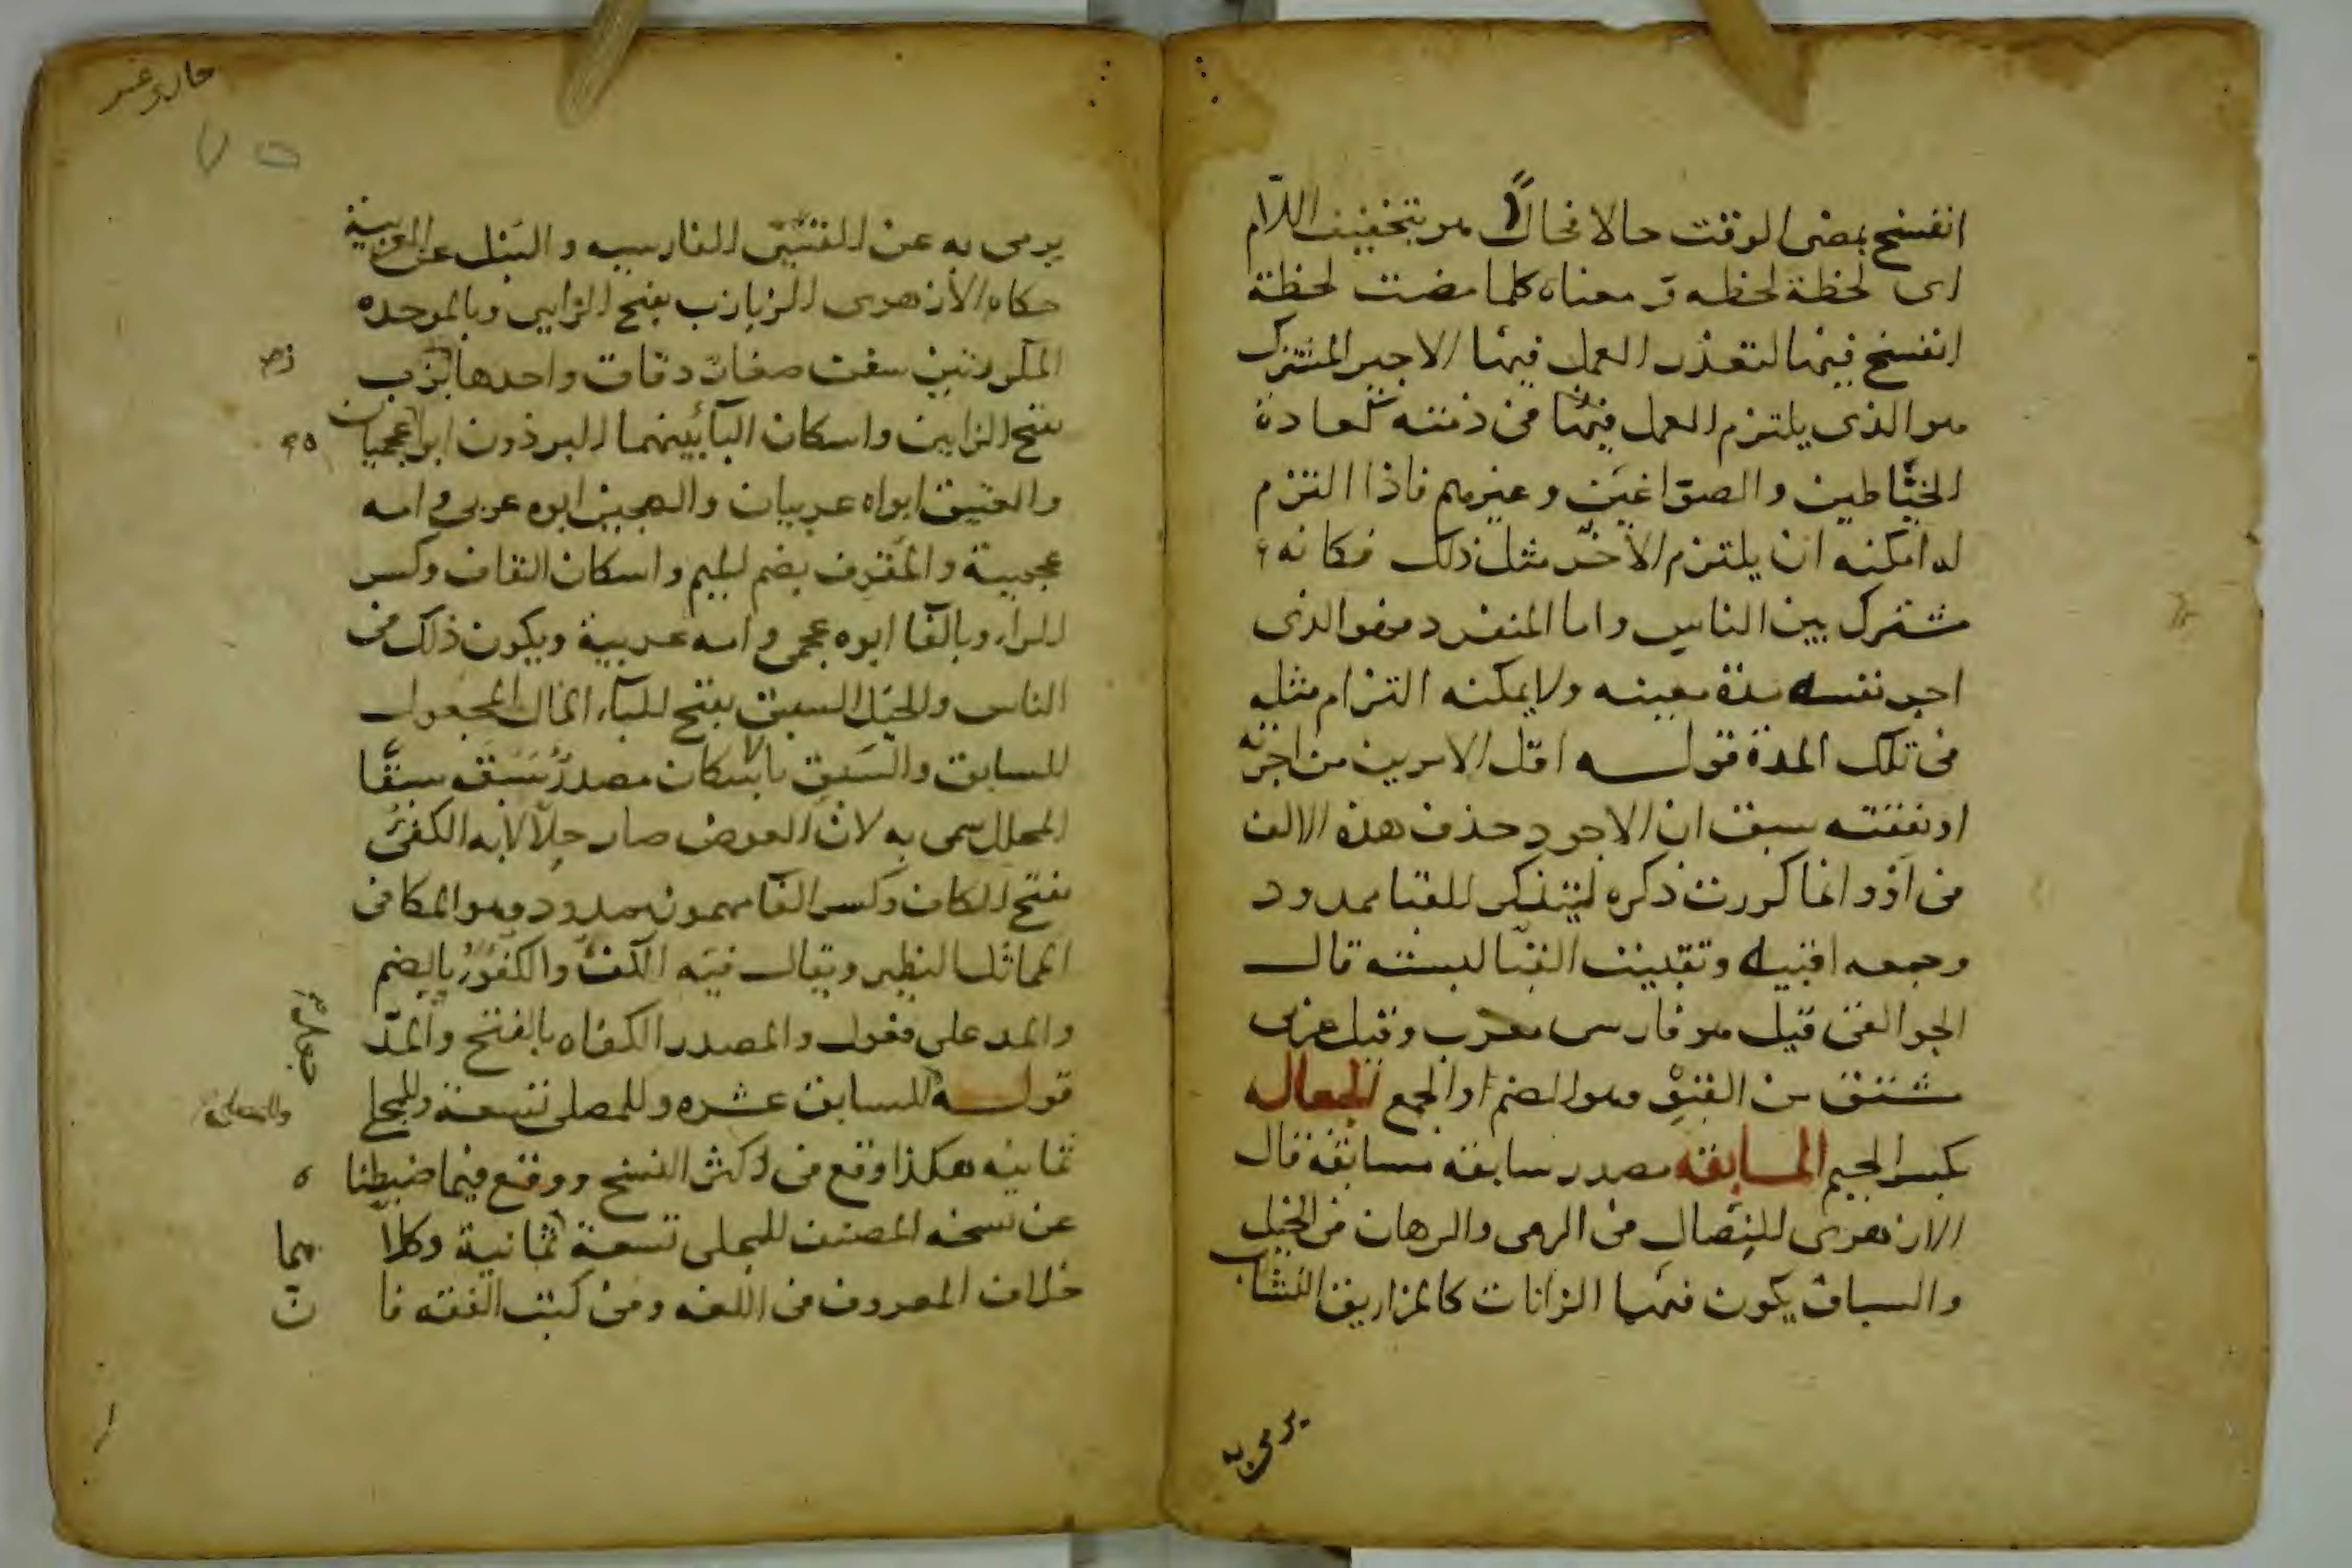 انفسخ بمضى الوقت حالا فحالاً هو بتخفيف اللام
اى لحظة لحظه و معناه كلما مضت لحظة
انفسخ فيها لتعذر العمل فيها الاجير المشترك
هو الذى يلتزم العمل فى ذمته كعادة
الخيّاطين والصوّاغين وغيرهم فاذا التزم
له امكنه ان يلتزم لاخر مثل ذلك فكانه
مشترك بين الناس واما المنفرد فهو الذى
اجر نفسه مدة معينه ولا يمكنه التزام مثله
فى تلك المدة قوله اقل الامرين من اجرته
او نفقته سبق ان الاجود حذف هذه الالف
من او وانما كررت ذكره ليتذكر القبا ممدود
وجمعه اقبيه وتقبيت القبا لبسته قال
الجواليقى قيل هو فارسى معرب وقيل عربى
مشتق من القبو وهو الضم والجمع الجعاله
بكسر الجيم المسابقه مصدر سابقه مسابقة قال
الازهرى النِضال فى الرمى والرهان فى الخيل
والسباق يكون فيهما الزانات كالمزاريق النشاب
يرمى به
يرمى به عن القسىّ الفارسيه والنبل عن العربية
حكاه الازهرى الزبازب بفتح الزايين وبالموحده
المكررتين سفن صغار دقاق واحدها زبزب
بفتح الزايين واسكان الباء بينهما البرذون ابواه عجميان
والعتيق ابواه عربيان والهجين ابوه عربى وامه
عجمية والمقرف بضم الميم واسكان القاف وكسر
الراء وبالفا ابوه عجمى وامه عربية ويكون ذلك فى
الناس والخيل السبق بفتح الباء المال المجعول
للسابق والسبق بالاسكان مصدر سبقه سبقًا
المحلل سمى به لان العوض صار حلالا به الكفئ
بفتح الكاف وكسر الفا مهموز ممدود وهو المكافى
المماثل النظير ويقال فيه الكفؤ والكفوؤ بالضم
والمد على فعول والمصدر الكفاه بالفتح والمدّ
قوله للسابق عشره وللمصلى تسعة وللمجلى
ثمانيه هكذا وقع فى اكثر النسخ ووقع فيما ضبطنا ه
عن نسخه المصنف للمجلى تسعة ثمانية وكلا هما
خلاف المعروف فى اللغه وفى كتب الفقه فا ن